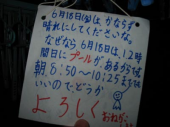 6月18日(金)は、かならず
晴れにしてくださいな。
なぜなら6月18日は、1,2時
間目にプールがあるからです
朝8:50〜10:25まで
いいので、どうか
よろしく
おねがい